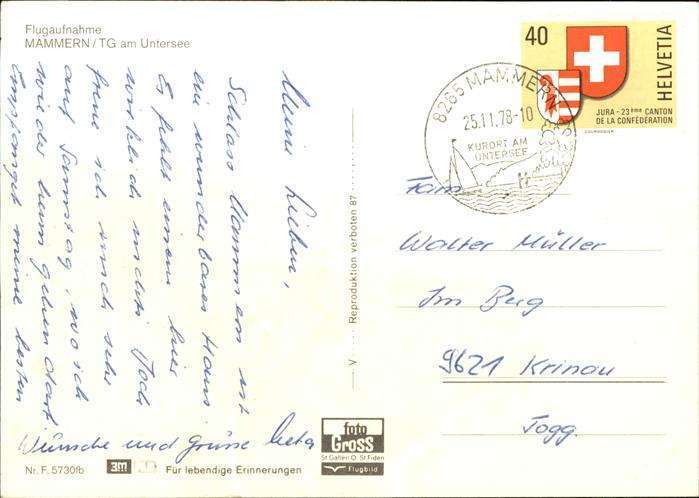 Flugaufnahme
MAMMERN / TG am Untersee
Meine Lieben,
Schloss Mammern ist
ein wunderbares Haus.
Es fehlt einem hier
wirklich nichts. Doch
freue ich mich sehr
auf Samstag, wo ich
wieder heim gehen darf.
Empfanget meine besten
Wünsche und Grüsse
Nr. F. 5730fb
3M
Für lebendige Erinnerungen
V
Reproduktion verboten 87
foto
GROSS
St Gallen O. St Fiden
Flugbild
40
HELVETIA
JURA - 23ème CANTON
DE LA CONFÉDÉRATION
COURVOISIER
8265 MAMMERN
25.11.78-10
KURORT AM
UNTERSEE
Fam.
Walter Müller
Im Berg
9621 Krinau
Togg.